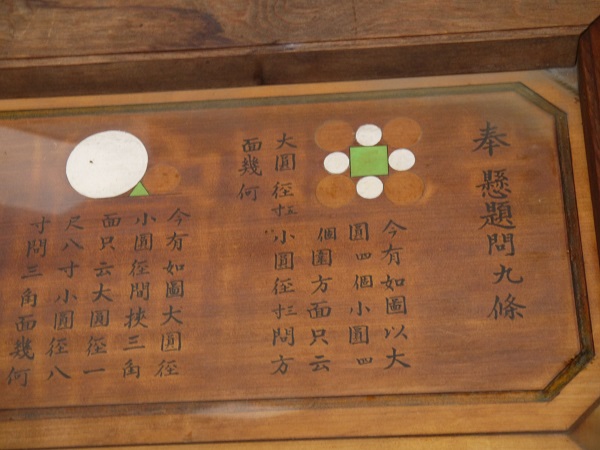 奉懸題問九條
今有如圖以大
圓四個小圓四
個圍方面只云
大圓徑小圓徑問方
面幾何
今有如圖大圓徑
小圓徑間挾三角
面只云大圓徑一
尺八寸小圓徑八
寸問三角面幾何